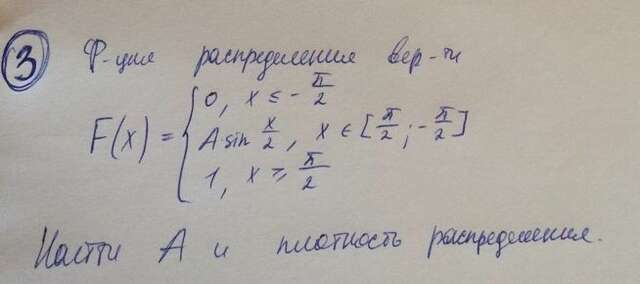 3 Ф-ция распределения вер-ти
F(x) = { 0, x ≤ -π/2
A sin x/2, x ∈ [π/2; -π/2]
1, x ≥ π/2
Найти A и плотность распределения.